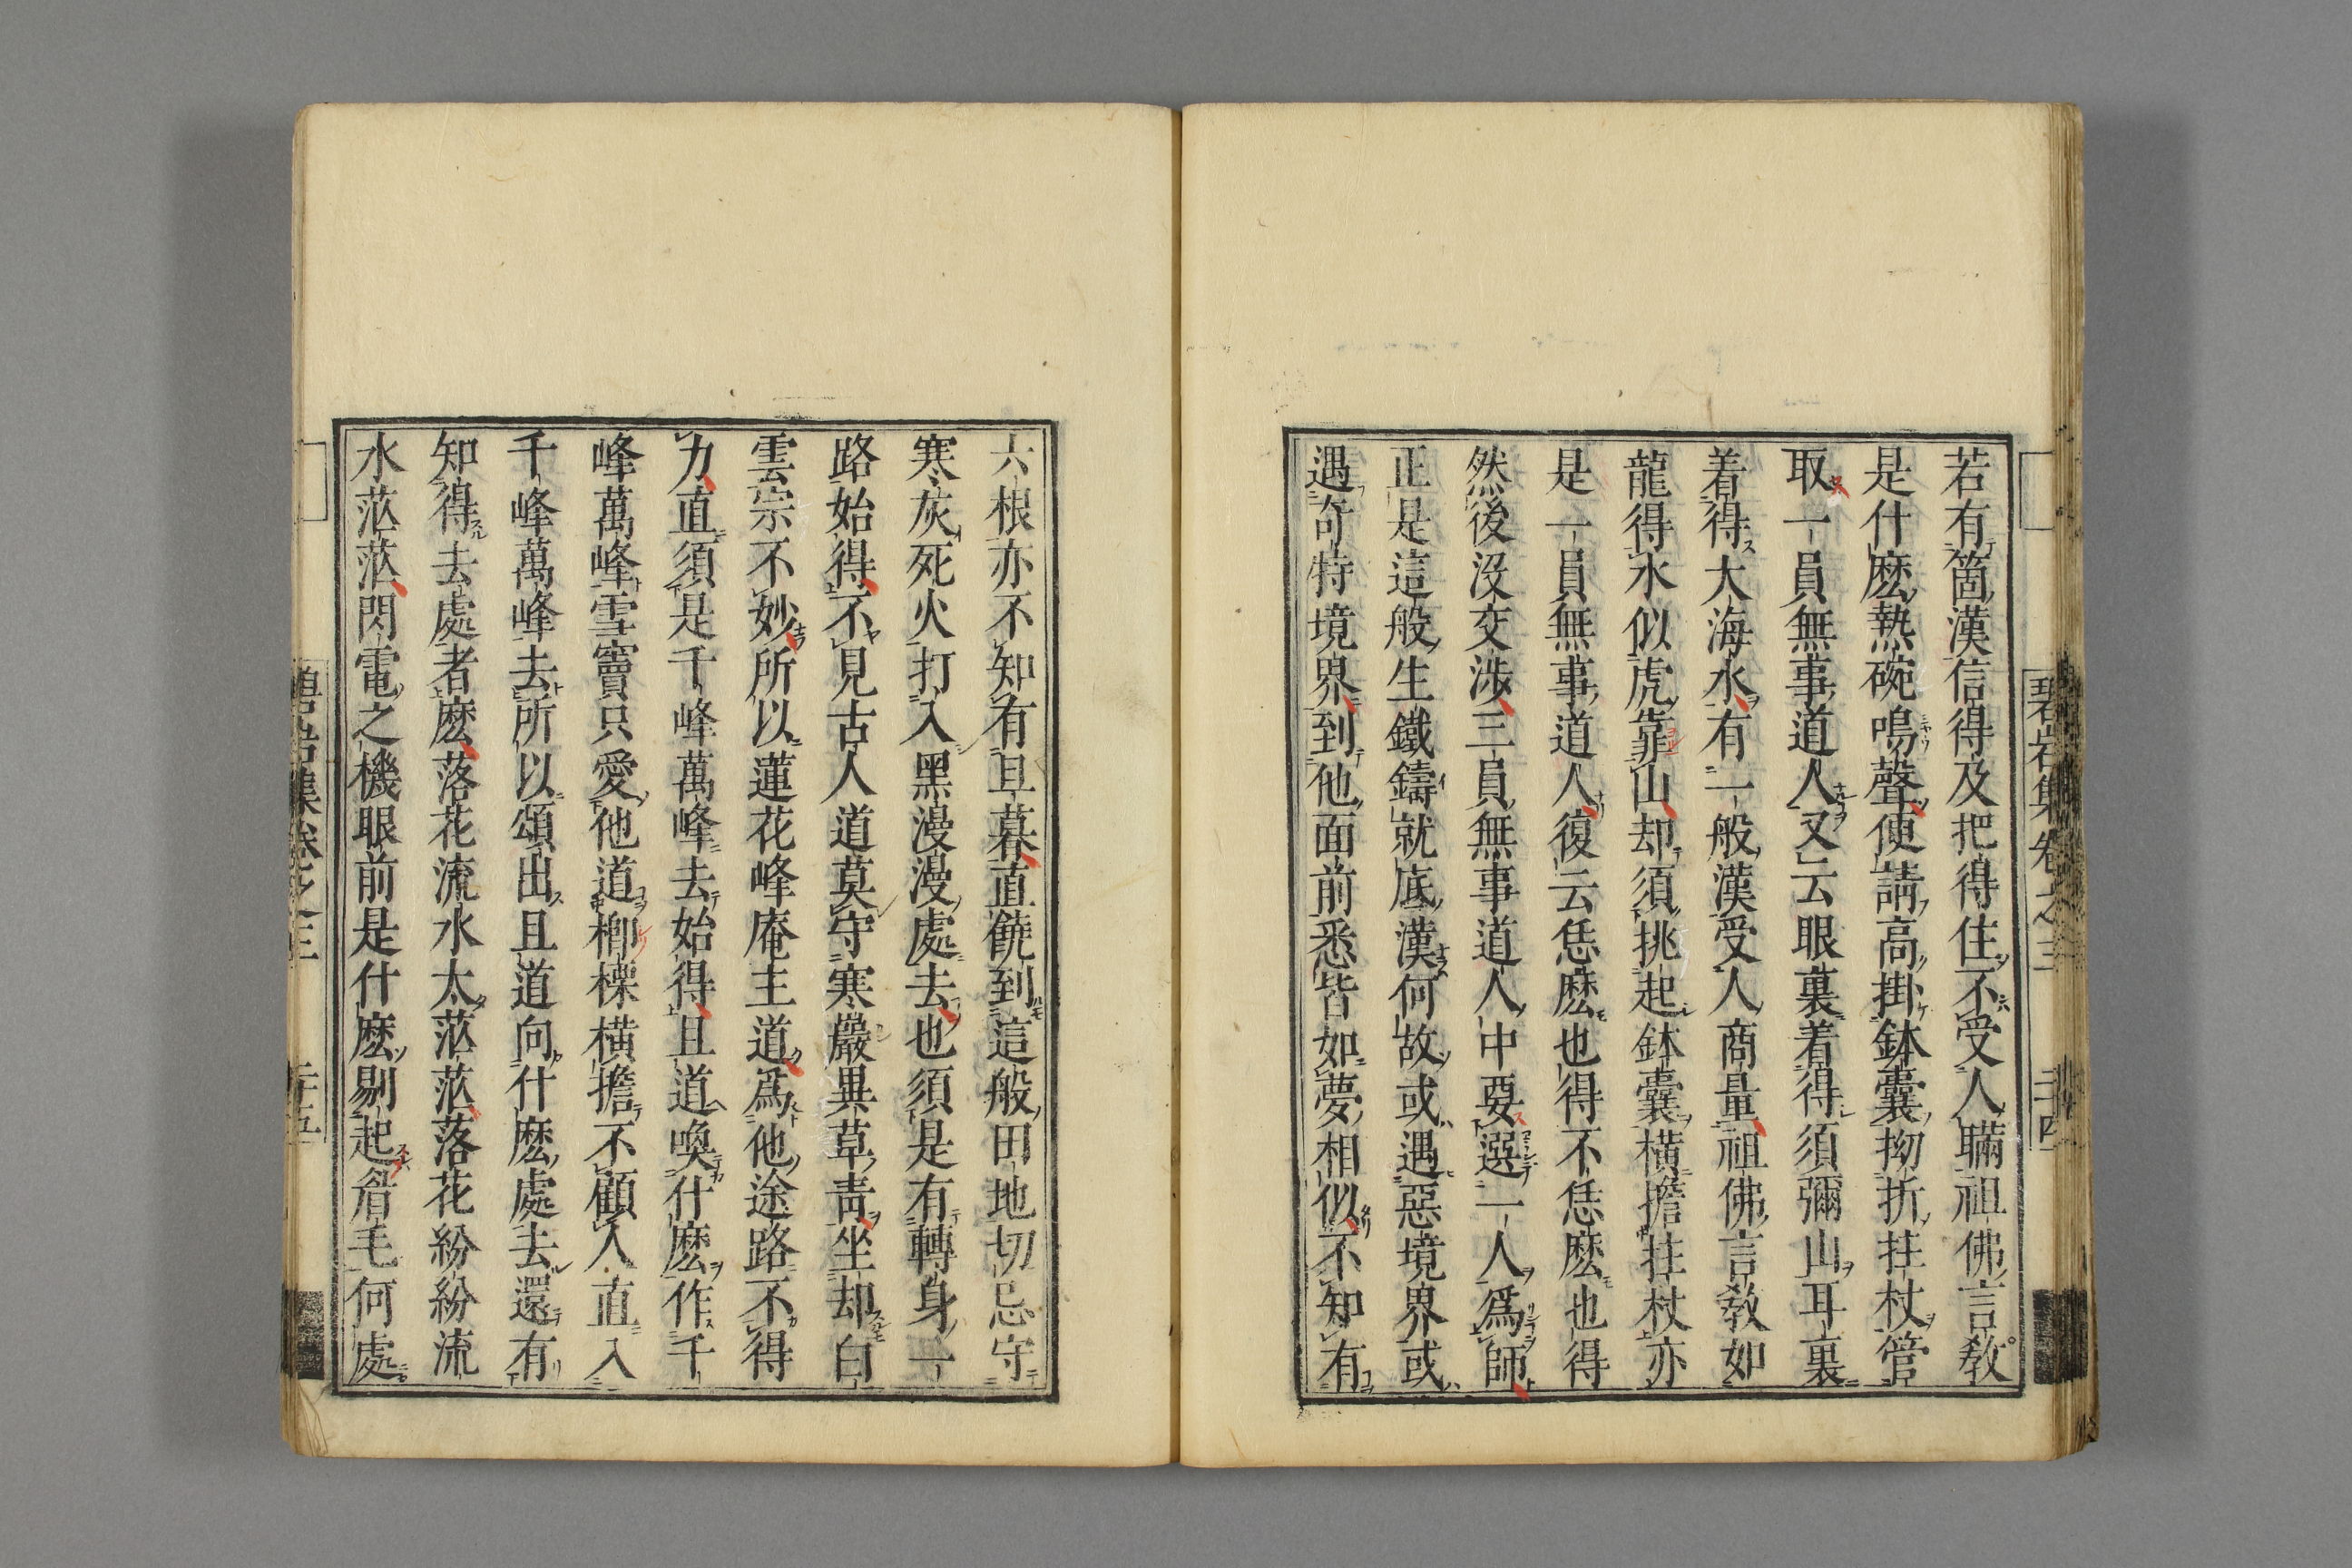 碧岩集卷之三
二十四
若有箇漢信得及把得住不受人瞞祖佛言教
是什麽熱碗鳴聲便請高掛鉢囊拗折拄杖管
取一員無事道人又云眼裏着得須彌山耳裏
着得大海水有一般漢受人商量祖佛言教如
龍得水似虎靠山却須挑起鉢囊橫擔拄杖亦
是一員無事道人復云恁麽也得不恁麽也得
然後沒交涉三員無事道人中要選一人爲師
正是這般生鐵鑄就底漢何故或遇惡境界或
遇奇特境界到他面前悉皆如夢相似不知有
六根亦不知有旦暮直饒到這般田地切忌守
寒灰死火打入黑漫漫處去也須是有轉身一
路始得不見古人道莫守寒巖異草靑坐却白
雲宗不妙所以蓮花峰庵主道爲他途路不得
力直須是千峰萬峰去始得且道喚什麽作千
峰萬峰雪竇只愛他道榔檪橫擔不顧人直入
千峰萬峰去所以頌出且道向什麽處去還有
知得去處者麽落花流水太茫茫落花紛紛流
水茫茫閃電之機眼前是什麽剔起眉毛何處
碧岩集卷之三
二十五